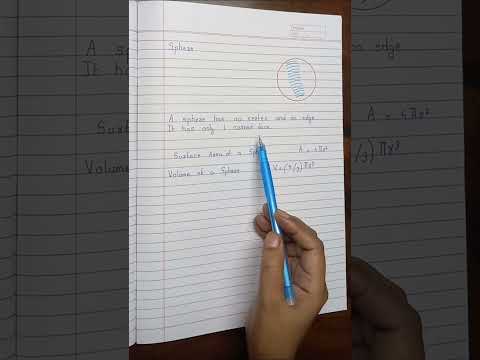 Sphere
A sphere has no vertex and no edge
It has only 1 curved face
Surface Area of a Sphere A = 4πr²
Volume of a Sphere V = (4/3)πr³